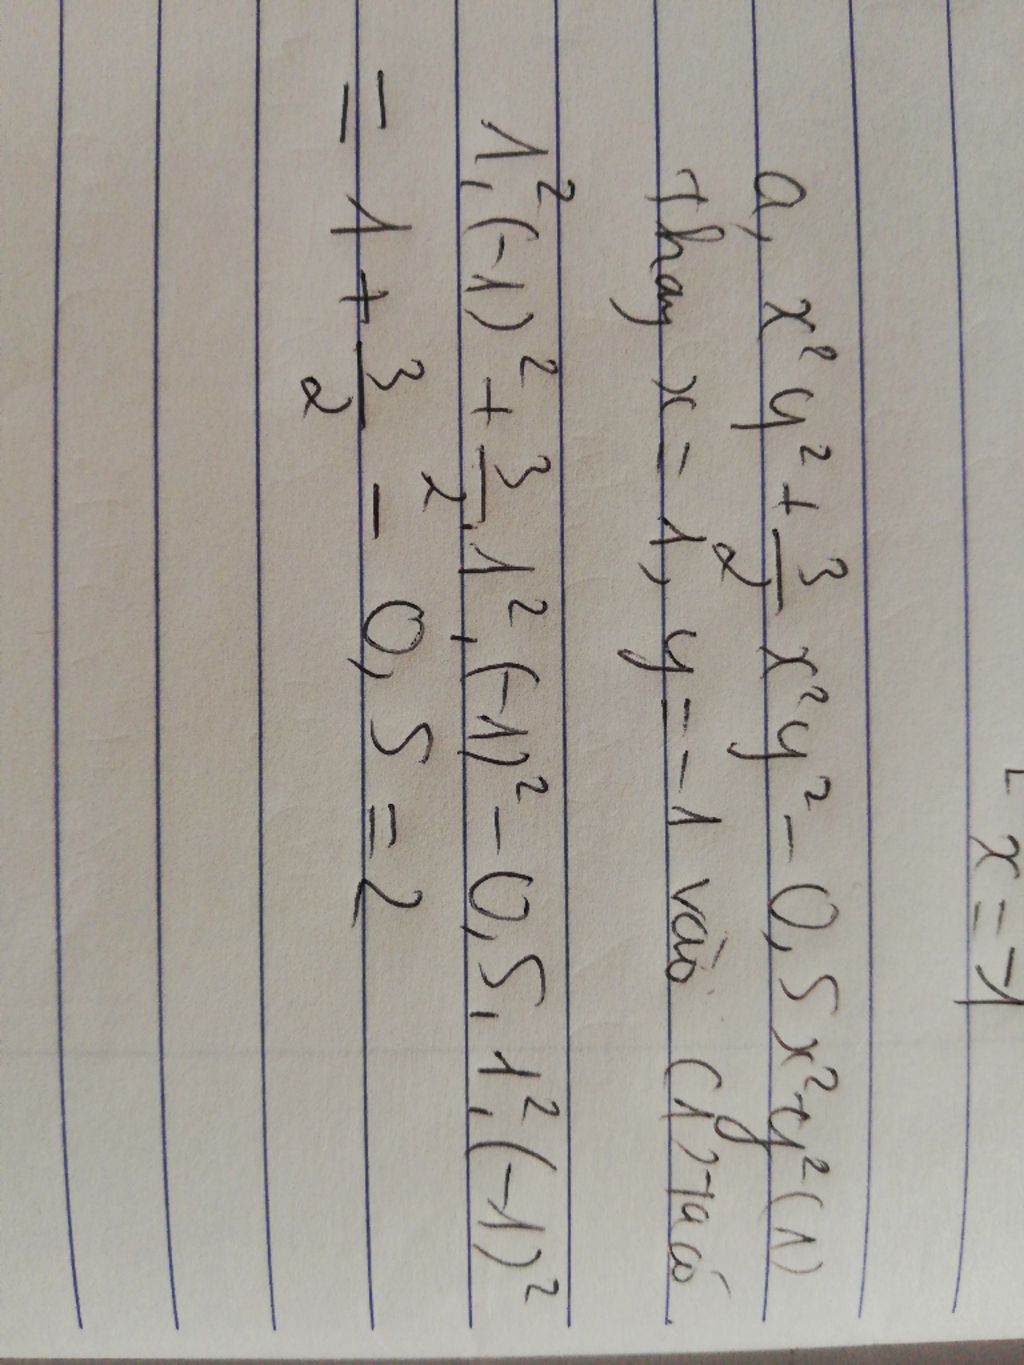 x = -1
a, x² y² + 3/2 x² y² - 0,5 x² y² (1)
Thay x = 1, y = -1 vào (1) ta có
1² . (-1)² + 3/2 . 1² . (-1)² - 0,5 . 1² . (-1)²
= 1 + 3/2 - 0,5 = 2